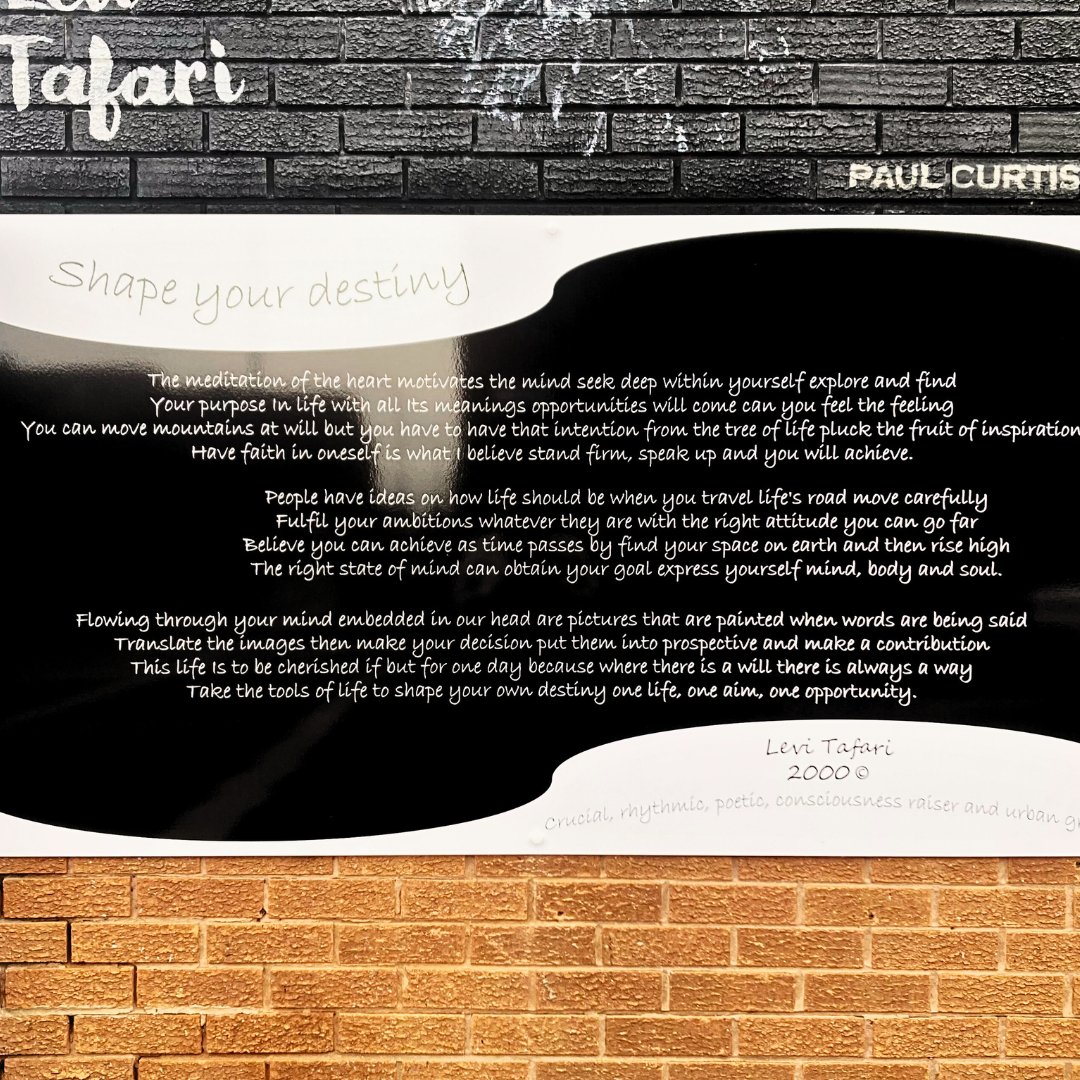 Tafari
PAUL CURTIS
Shape your destiny
The meditation of the heart motivates the mind seek deep within yourself explore and find
Your purpose In life with all Its meanings opportunities will come can you feel the feeling
You can move mountains at will but you have to have that intention from the tree of life pluck the fruit of inspiration
Have faith in oneself is what I believe stand firm, speak up and you will achieve.
People have ideas on how life should be when you travel life's road move carefully
Fulfil your ambitions whatever they are with the right attitude you can go far
Believe you can achieve as time passes by find your space on earth and then rise high
The right state of mind can obtain your goal express yourself mind, body and soul.
Flowing through your mind embedded in our head are pictures that are painted when words are being said
Translate the images then make your decision put them into prospective and make a contribution
This life Is to be cherished if but for one day because where there is a will there is always a way
Take the tools of life to shape your own destiny one life, one aim, one opportunity.
Levi Tafari
2000 ©
Crucial, rhythmic, poetic, consciousness raiser and urban